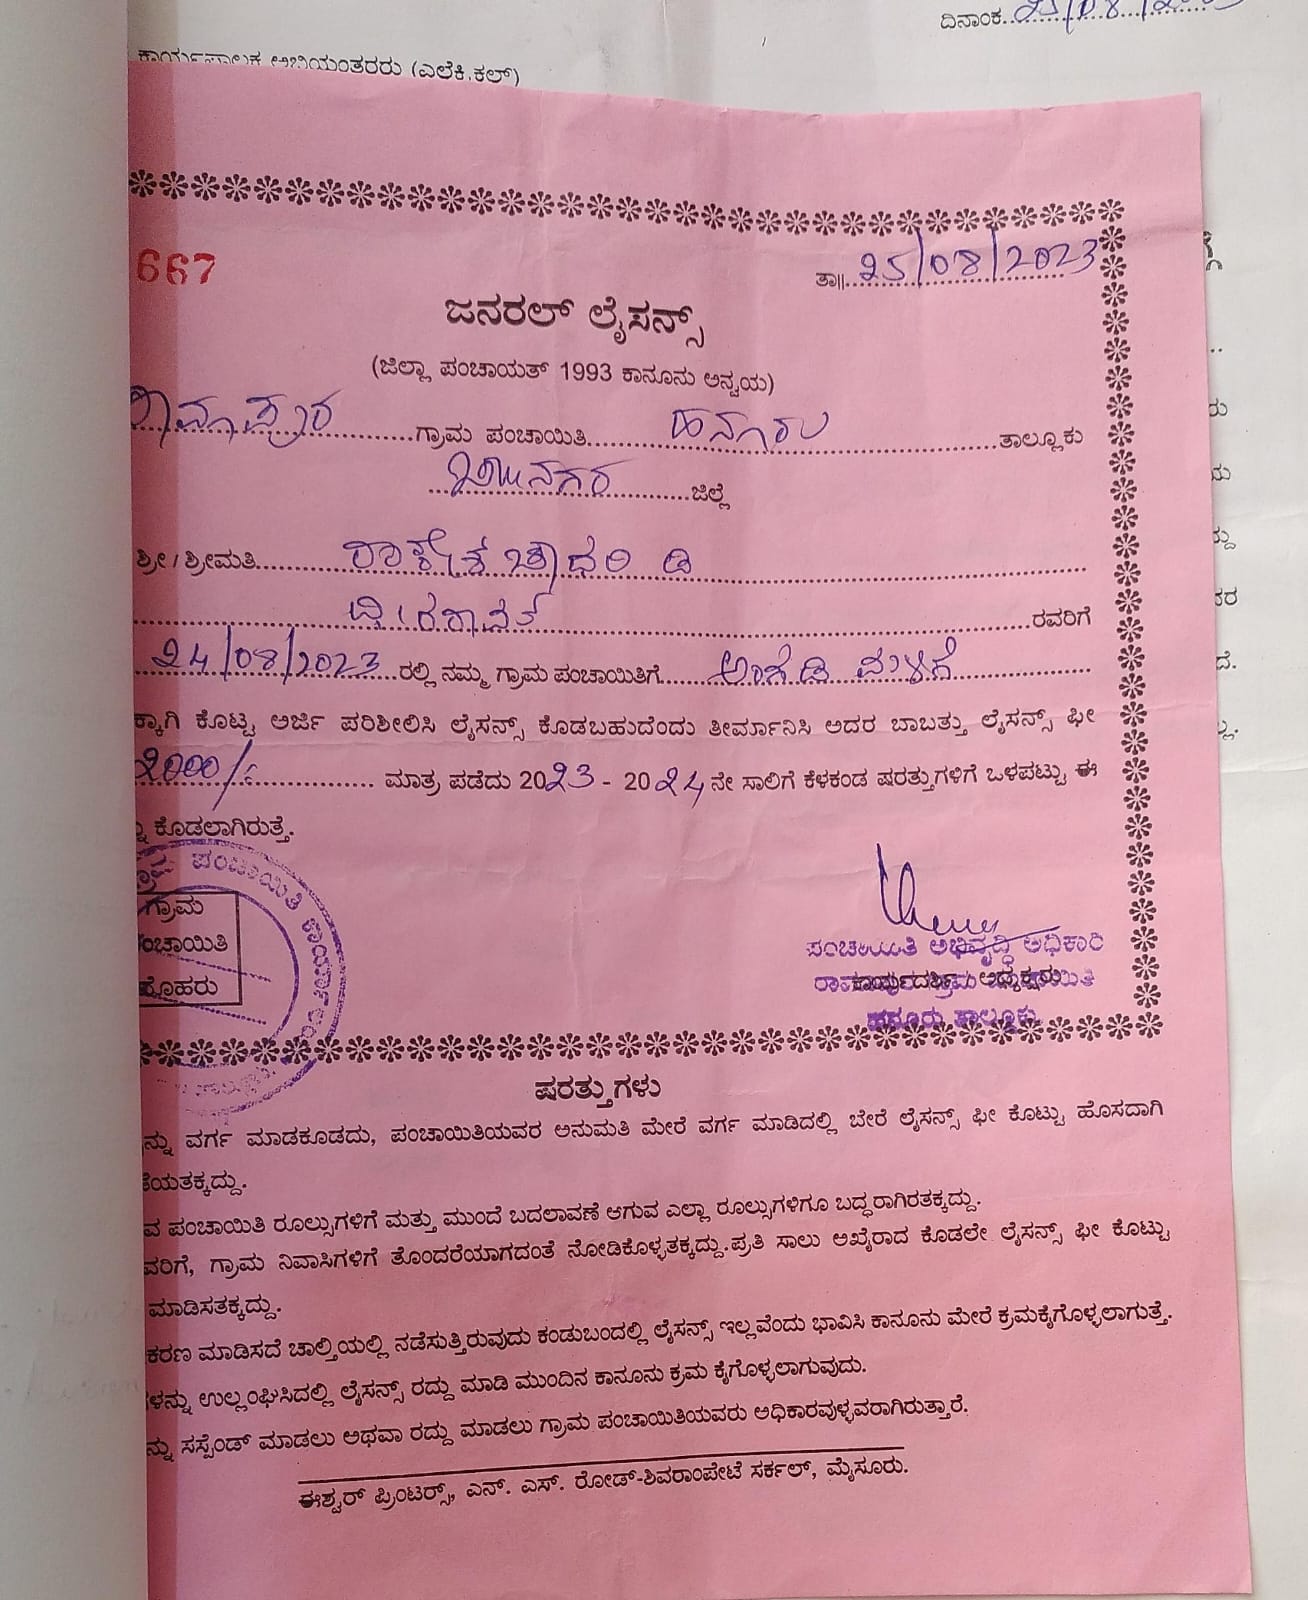 ದಿನಾಂಕ 25/08/
ಕಾರ್ಯಪಾಲಕ ಅಭಿಯಂತರರು (ಎಲೆಕಿ.ಕಲ್)
667
ತಾ॥ 25/08/2023
ಜನರಲ್ ಲೈಸನ್ಸ್
(ಜಿಲ್ಲಾ ಪಂಚಾಯತ್ 1993 ಕಾನೂನು ಅನ್ವಯ)
ರಾಮಾಪುರ ಗ್ರಾಮ ಪಂಚಾಯಿತಿ ಹನೂರು ತಾಲ್ಲೂಕು
ಜಿಲ್ಲೆ
ಶ್ರೀ / ಶ್ರೀಮತಿ ರಾಕೇಶ ಚೌಧರಿ ಡಿ
ರವರಿಗೆ
24/08/2023 ರಲ್ಲಿ ನಮ್ಮ ಗ್ರಾಮ ಪಂಚಾಯಿತಿಗೆ ಅಂಗಡಿ ಮಳಿಗೆ
ಕ್ಕಾಗಿ ಕೊಟ್ಟ ಅರ್ಜಿ ಪರಿಶೀಲಿಸಿ ಲೈಸನ್ಸ್ ಕೊಡಬಹುದೆಂದು ತೀರ್ಮಾನಿಸಿ ಅದರ ಬಾಬತ್ತು ಲೈಸನ್ಸ್ ಫೀ
2000/- ಮಾತ್ರ ಪಡೆದು 2023 - 2024 ನೇ ಸಾಲಿಗೆ ಕೆಳಕಂಡ ಷರತ್ತುಗಳಿಗೆ ಒಳಪಟ್ಟು ಈ
ನ್ನು ಕೊಡಲಾಗಿರುತ್ತೆ.
ಗ್ರಾಮ ಪಂಚಾಯಿತಿ ಕಾರ್ಯಾಲಯ
ಗ್ರಾಮ
ಪಂಚಾಯಿತಿ
ಮೊಹರು
ಪಂಚಾಯಿತಿ ಅಭಿವೃದ್ಧಿ ಅಧಿಕಾರಿ
ಕಾರ್ಯದರ್ಶಿ ಅಧ್ಯಕ್ಷರು
ಹನೂರು ತಾಲ್ಲೂಕು
ಷರತ್ತುಗಳು
ನ್ನು ವರ್ಗ ಮಾಡಕೂಡದು, ಪಂಚಾಯಿತಿಯವರ ಅನುಮತಿ ಮೇರೆ ವರ್ಗ ಮಾಡಿದಲ್ಲಿ ಬೇರೆ ಲೈಸನ್ಸ್ ಫೀ ಕೊಟ್ಟು ಹೊಸದಾಗಿ
ಕೆಯತಕ್ಕದ್ದು.
ವ ಪಂಚಾಯಿತಿ ರೂಲ್ಸುಗಳಿಗೆ ಮತ್ತು ಮುಂದೆ ಬದಲಾವಣೆ ಆಗುವ ಎಲ್ಲಾ ರೂಲ್ಸುಗಳಿಗೂ ಬದ್ಧರಾಗಿರತಕ್ಕದ್ದು.
ವರಿಗೆ, ಗ್ರಾಮ ನಿವಾಸಿಗಳಿಗೆ ತೊಂದರೆಯಾಗದಂತೆ ನೋಡಿಕೊಳ್ಳತಕ್ಕದ್ದು.ಪ್ರತಿ ಸಾಲು ಅಖೈರಾದ ಕೊಡಲೇ ಲೈಸನ್ಸ್ ಫೀ ಕೊಟ್ಟು
ಮಾಡಿಸತಕ್ಕದ್ದು.
ಕರಣ ಮಾಡಿಸದೆ ಚಾಲ್ತಿಯಲ್ಲಿ ನಡೆಸುತ್ತಿರುವುದು ಕಂಡುಬಂದಲ್ಲಿ ಲೈಸನ್ಸ್ ಇಲ್ಲವೆಂದು ಭಾವಿಸಿ ಕಾನೂನು ಮೇರೆ ಕ್ರಮಕೈಗೊಳ್ಳಲಾಗುತ್ತೆ.
ಳನ್ನು ಉಲ್ಲಂಘಿಸಿದಲ್ಲಿ ಲೈಸನ್ಸ್ ರದ್ದು ಮಾಡಿ ಮುಂದಿನ ಕಾನೂನು ಕ್ರಮ ಕೈಗೊಳ್ಳಲಾಗುವುದು.
ನ್ನು ಸಸ್ಪೆಂಡ್ ಮಾಡಲು ಅಥವಾ ರದ್ದು ಮಾಡಲು ಗ್ರಾಮ ಪಂಚಾಯಿತಿಯವರು ಅಧಿಕಾರವುಳ್ಳವರಾಗಿರುತ್ತಾರೆ.
ಈಶ್ವರ್ ಪ್ರಿಂಟರ್ಸ್, ಎನ್. ಎಸ್. ರೋಡ್-ಶಿವರಾಂಪೇಟೆ ಸರ್ಕಲ್, ಮೈಸೂರು.